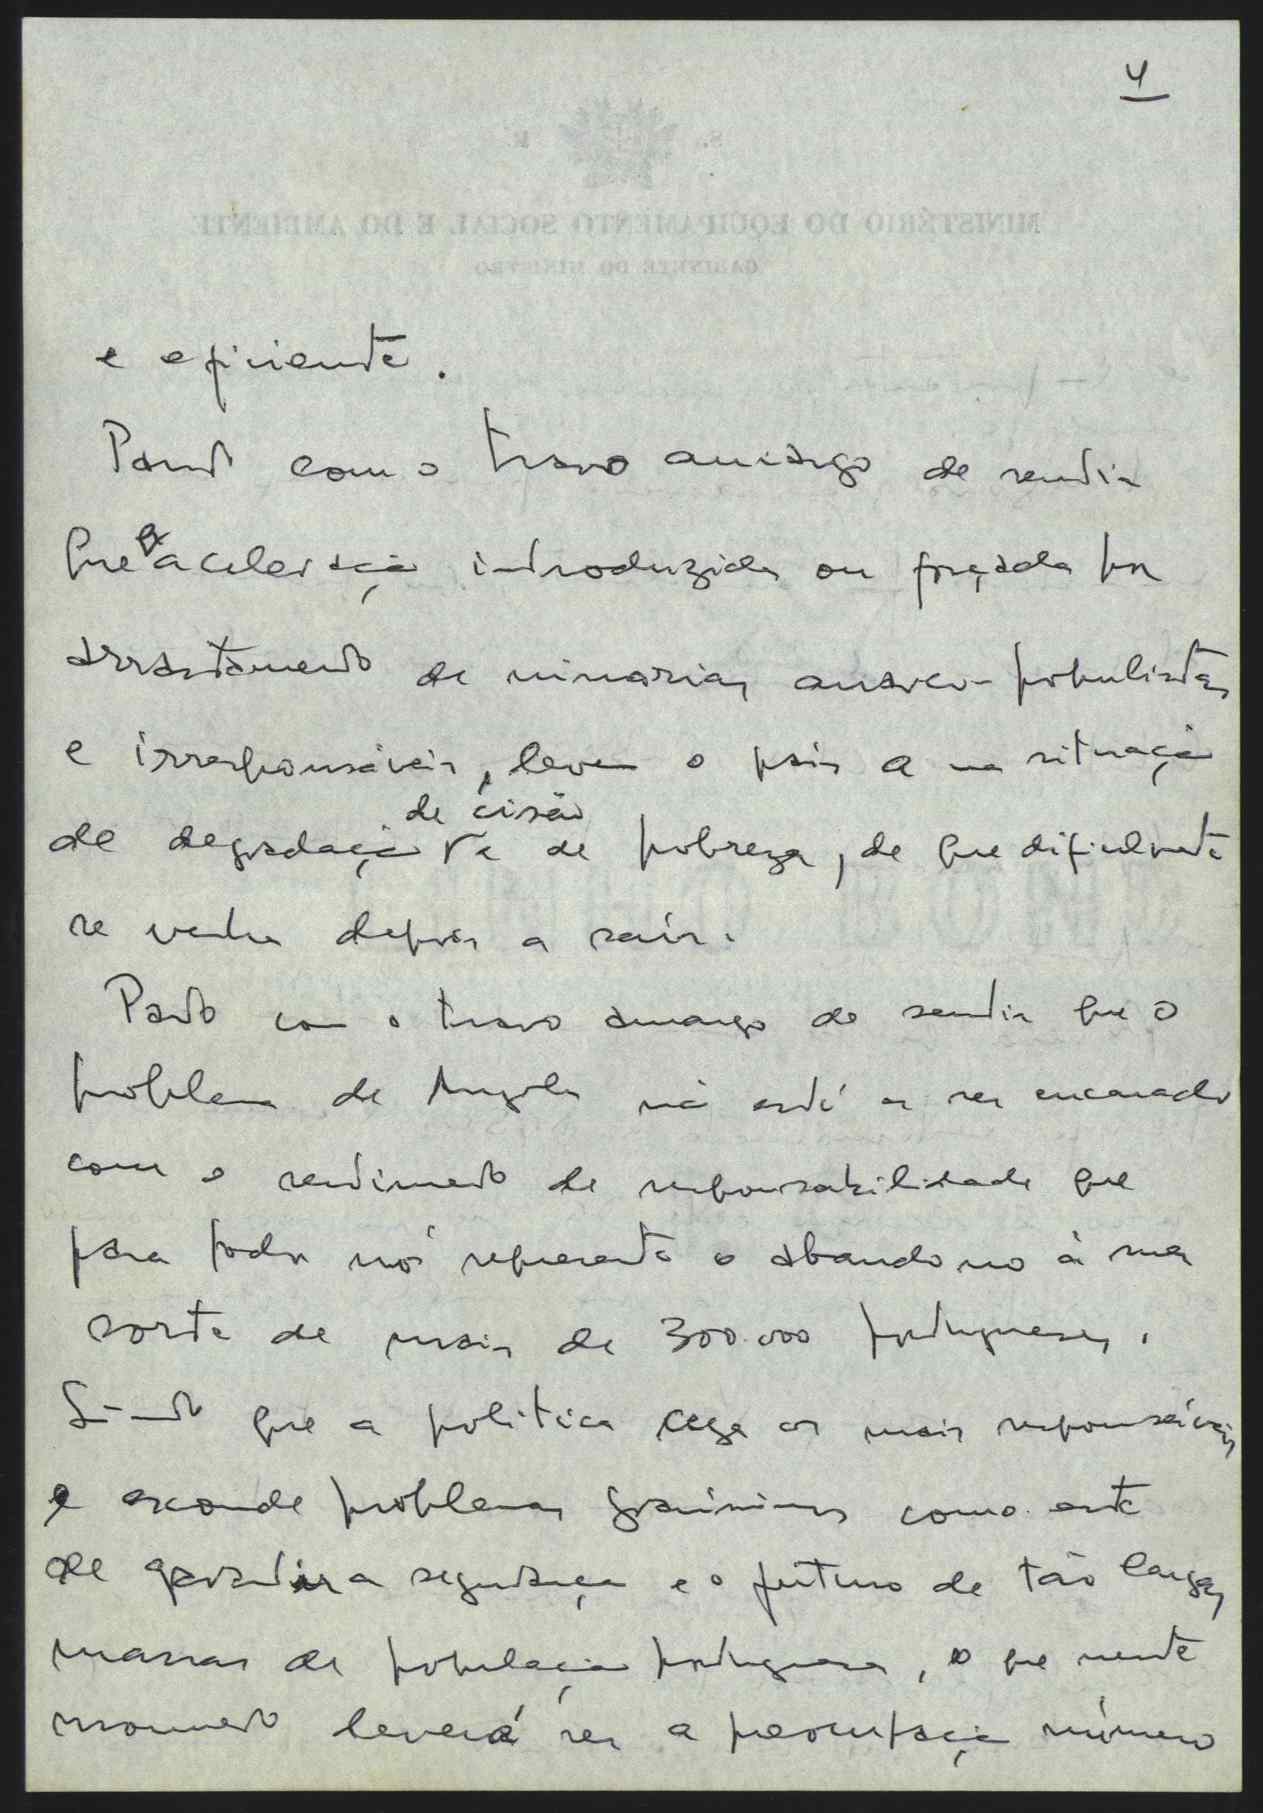 4
S. R.
MINISTÉRIO DO EQUIPAMENTO SOCIAL E DO AMBIENTE
GABINETE DO MINISTRO
e eficiente.
Parto com o travo amargo de sentir
que a aceleração introduzida ou forçada por
arrastamento de minorias anarco-populistas
e irresponsáveis, levem o país a uma situação
de degradação de cisão e de pobreza, de que dificilmente
se venha depois a sair.
Parto com o travo amargo de sentir que o
problema de Angola não está a ser encarado
com o sentimento de responsabilidade que
para todos nós representa o abandono à sua
sorte de mais de 300.000 portugueses.
Sinto que a política cega os mais responsáveis
e esconde problemas gravíssimos como este
de garantir a segurança e o futuro de tão largas
massas de população portuguesa, o que neste
momento deverá ser a preocupação número